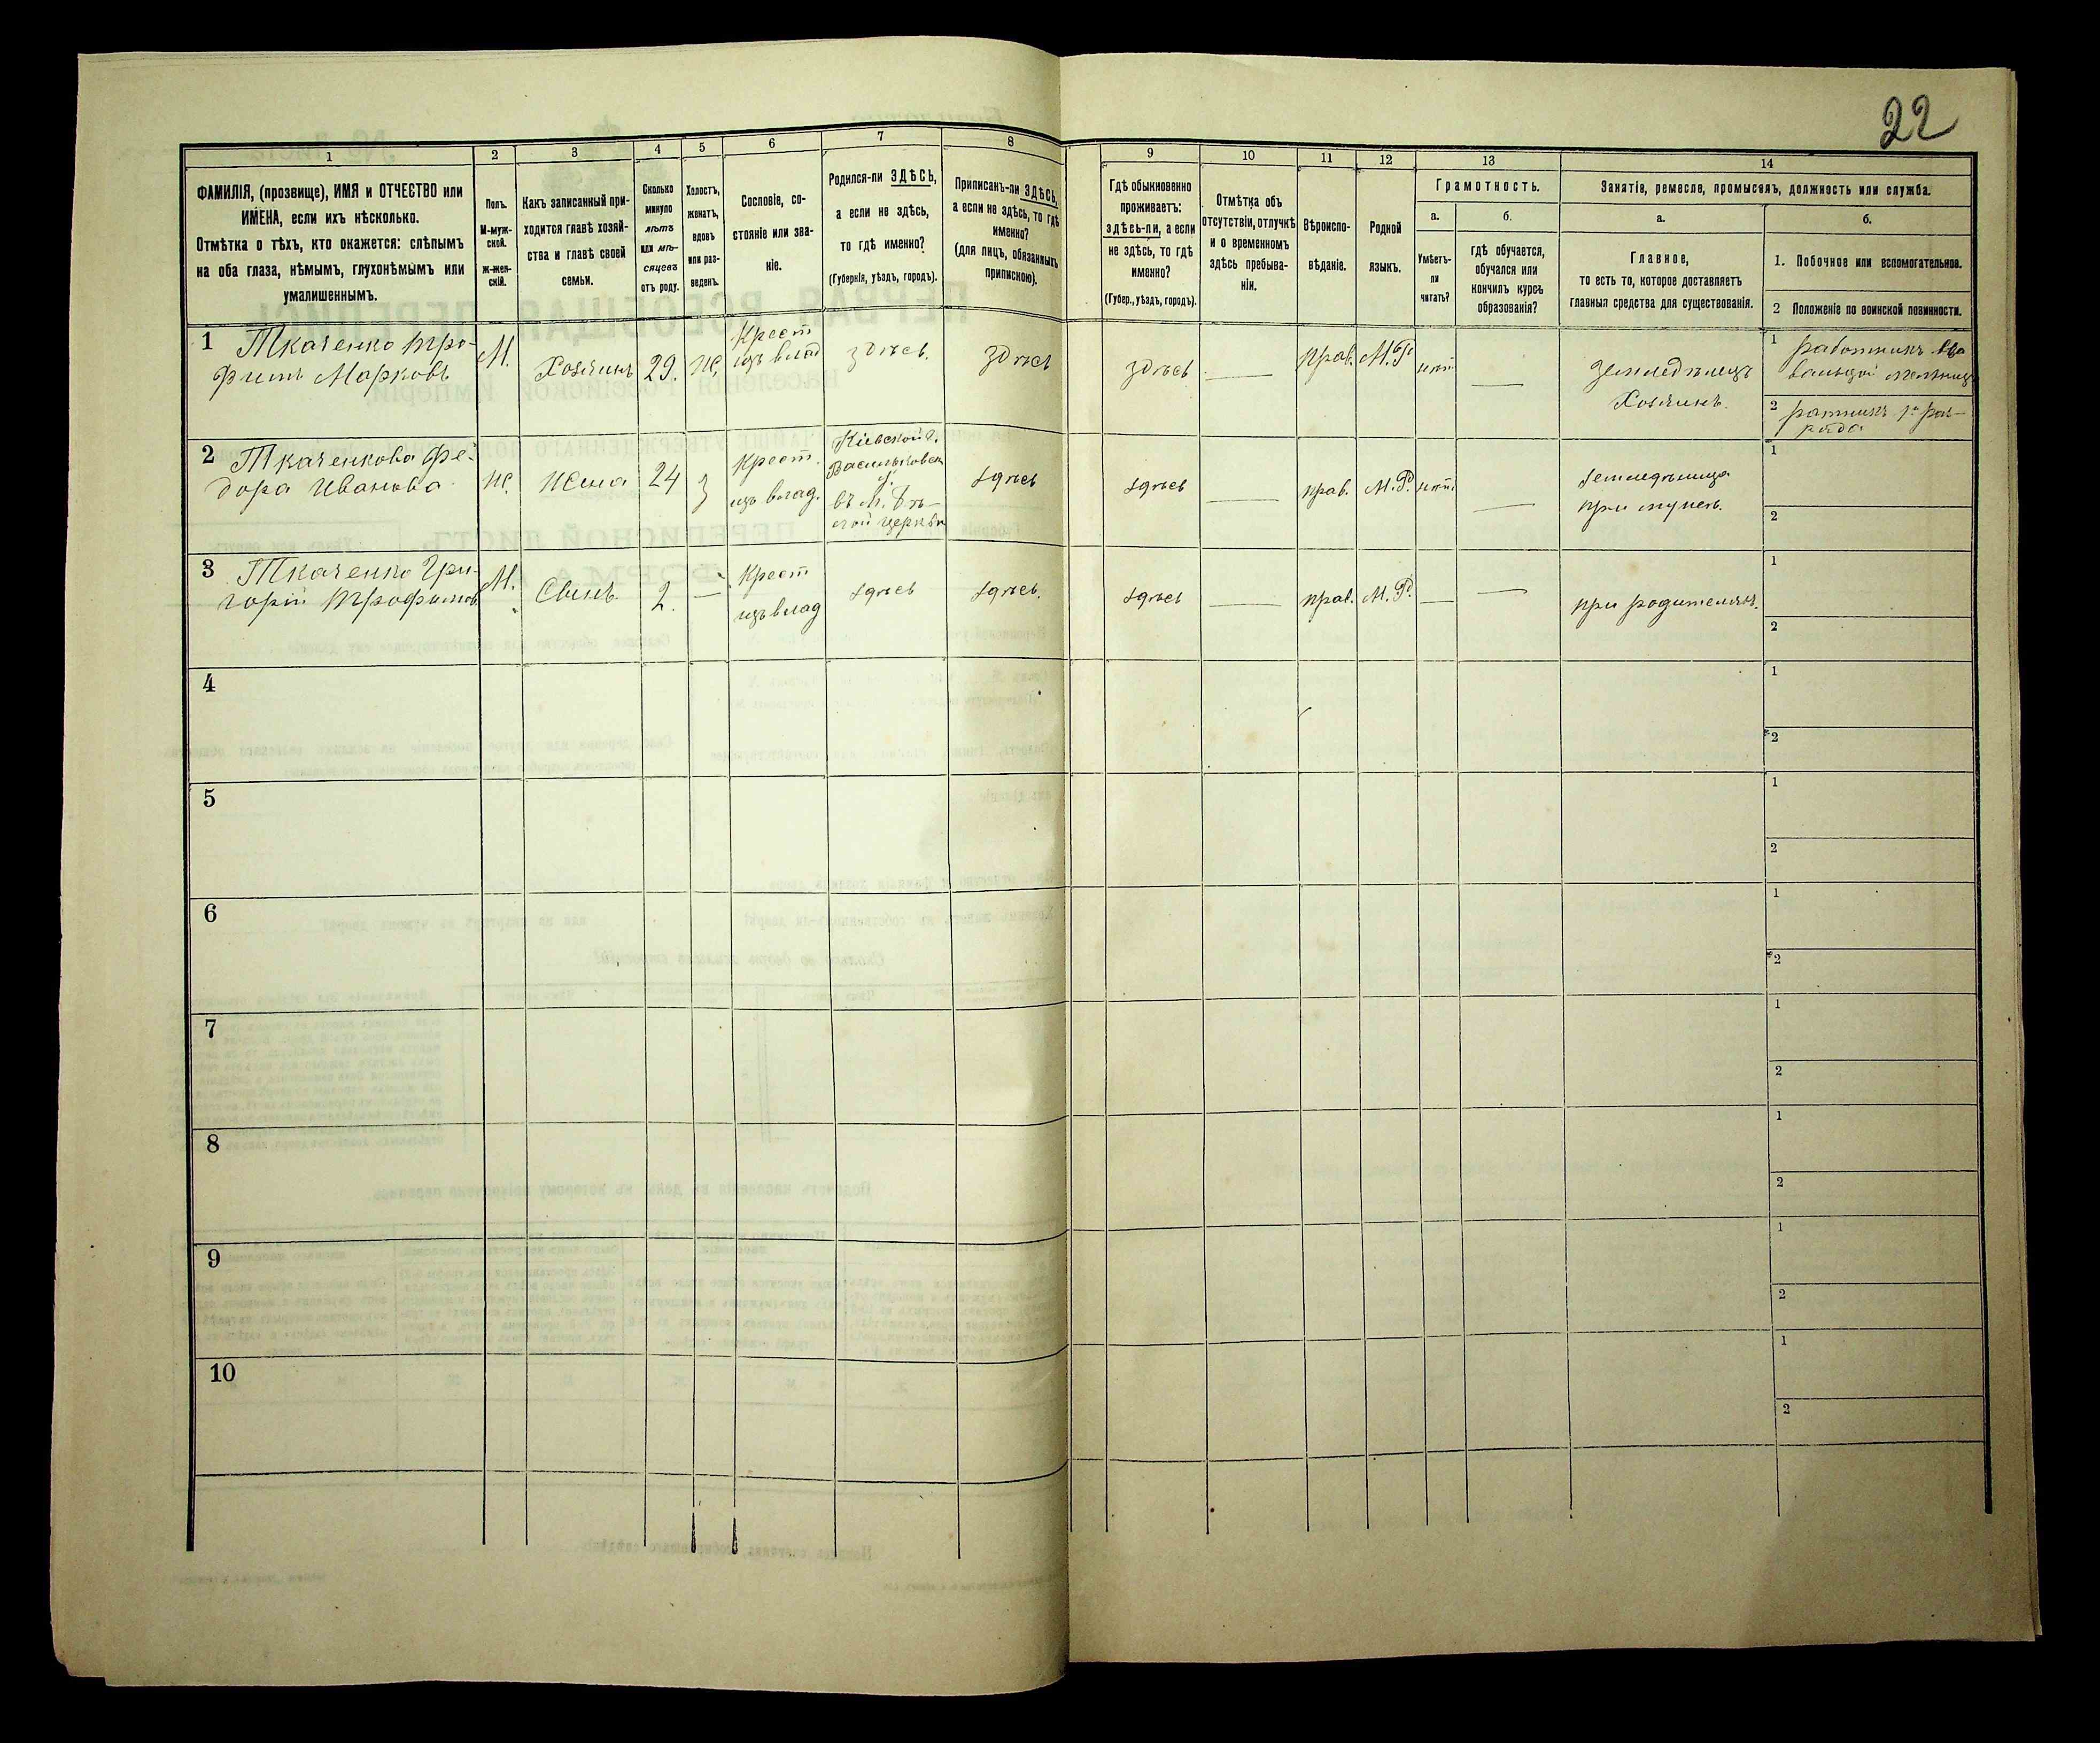 22
1
2
3
4
5
6
7
8
9
10
11
12
13
14
ФАМИЛІЯ, (прозвище), ИМЯ и ОТЧЕСТВО или
ИМЕНА, если ихъ нѣсколько.
Отмѣтка о тѣхъ, кто окажется: слѣпымъ
на оба глаза, нѣмымъ, глухонѣмымъ или
умалишеннымъ.
Полъ.
М-муж-
ской.
ж-жен-
скій.
Какъ записанный при-
ходится главѣ хозяй-
ства и главѣ своей
семьи.
Сколько
минуло
лѣтъ
или мѣ-
сяцевъ
отъ роду.
Холостъ,
женатъ,
вдовъ
или раз-
веденъ.
Сословіе, со-
стояніе или зва-
ніе.
Родился-ли ЗДѢСЬ,
а если не здѣсь,
то гдѣ именно?
(Губернія, уѣздъ, городъ).
Приписанъ-ли ЗДѢСЬ,
а если не здѣсь, то гдѣ
именно?
(для лицъ, обязанныхъ
припискою).
Гдѣ обыкновенно
проживаетъ:
здѣсь-ли, а если
не здѣсь, то гдѣ
именно?
(Губер., уѣздъ, городъ).
Отмѣтка объ
отсутствіи, отлучкѣ
и о временномъ
здѣсь пребыва-
ніи.
Вѣроиспо-
вѣданіе.
Родной
языкъ.
Грамотность.
а.
Умѣетъ-
ли
читать?
б.
гдѣ обучается,
обучался или
кончилъ курсъ
образованія?
Занятіе, ремесло, промыселъ, должность или служба.
а.
Главное,
то есть то, которое доставляетъ
главныя средства для существованія.
б.
1. Побочное или вспомогательное.
2 Положеніе по воинской повинности.
1 Ткаченко Тро-
фимъ Марковъ
М.
Хозяинъ
29.
Ж.
Крест
изъ влад
здѣсь.
здѣсь
здѣсь
Прав.
М. Р.
нѣтъ
Земледѣлецъ
Хозяинъ.
1 работникъ
мельниц
2 ратникъ 1го раз-
ряда
2 Ткаченкова Фе-
дора Иванова
Ж.
Жена
24
З
Крест.
изъ влад.
Кіевской г.
Васильковск
у.
въ М. Бѣ-
лой Церкви
здѣсь
здѣсь
прав.
М. Р.
нѣтъ
земледѣлица
при мужѣ.
1
2
3 Ткаченко Гри-
горій Трофимовъ
М.
Сынъ
2.
Крест
изъ влад
здѣсь
здѣсь.
здѣсь
прав.
М. Р.
при родителяхъ.
1
2
4
1
2
5
1
2
6
1
2
7
1
2
8
1
2
9
1
2
10
1
2